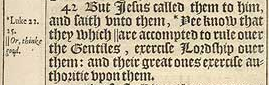 42 But Jesus called them to him,
and saith vnto them, *Yee know that
they which ||are accompted to rule ouer
the Gentiles, exercise Lordship ouer
them: and their great ones exercise au-
thoritie vpon them.
*Luke 22.
25.
||Or, thinke
good.